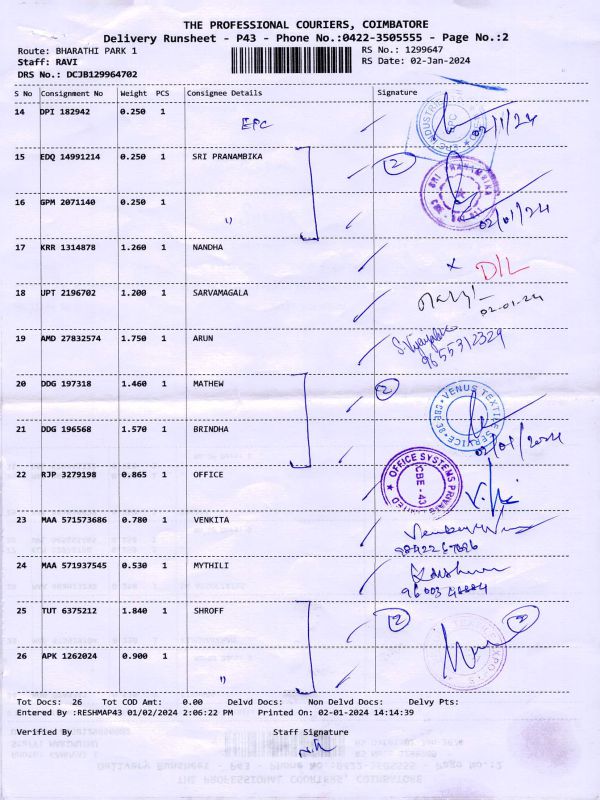 THE PROFESSIONAL COURIERS, COIMBATORE
Delivery Runsheet - P43 - Phone No.:0422-3505555 - Page No.:2
Route: BHARATHI PARK 1 RS No.: 1299647
Staff: RAVI RS Date: 02-Jan-2024
DRS No.: DCJB129964702
S No Consignment No Weight PCS Consignee Details Signature
14 DPI 182942 0.250 1 EPC 02/1/24
15 EDQ 14991214 0.250 1 SRI PRANAMBIKA 2
16 GPM 2071140 0.250 1 " 02/01/24
17 KRR 1314878 1.260 1 NANDHA x D/L
18 UPT 2196702 1.200 1 SARVAMAGALA 02-01-24
19 AMD 27832574 1.750 1 ARUN 9655312329
20 DDG 197318 1.460 1 MATHEW 2 VENUS TEXTILE SERVICE
21 DDG 196568 1.570 1 BRINDHA 02/01/2024
22 RJP 3279198 0.865 1 OFFICE OFFICE SYSTEMS PRIVATE LIMITED CBE-43
23 MAA 571573686 0.780 1 VENKITA
24 MAA 571937545 0.530 1 MYTHILI
25 TUT 6375212 1.840 1 SHROFF 2 2
26 APK 1262024 0.900 1 "
Tot Docs: 26 Tot COD Amt: 0.00 Delvd Docs: Non Delvd Docs: Delvy Pts:
Entered By :RESHMAP43 01/02/2024 2:06:22 PM Printed On: 02-01-2024 14:14:39
Verified By Staff Signature